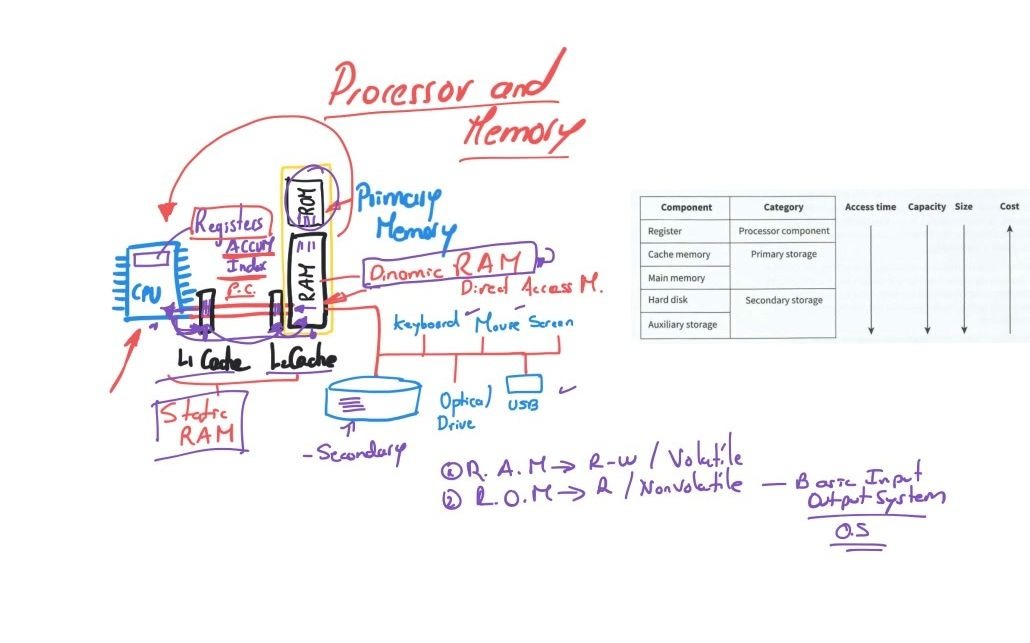 Processor and
Memory
ROM
Primary
Memory
Registers
ACCUM
Index
P.C.
CPU
RAM
Dinamic RAM
Direct Access M.
Keyboard
Mouse
Screen
L1 Cache
L2 Cache
Static
RAM
Optical
Drive
USB
- Secondary
① R. A. M → R-W / Volatile
② R.O.M → R / NonVolatile — Basic Input
Output System
O.S
Component Category Access time Capacity Size Cost
Register Processor component
Cache memory Primary storage
Main memory
Hard disk Secondary storage
Auxiliary storage